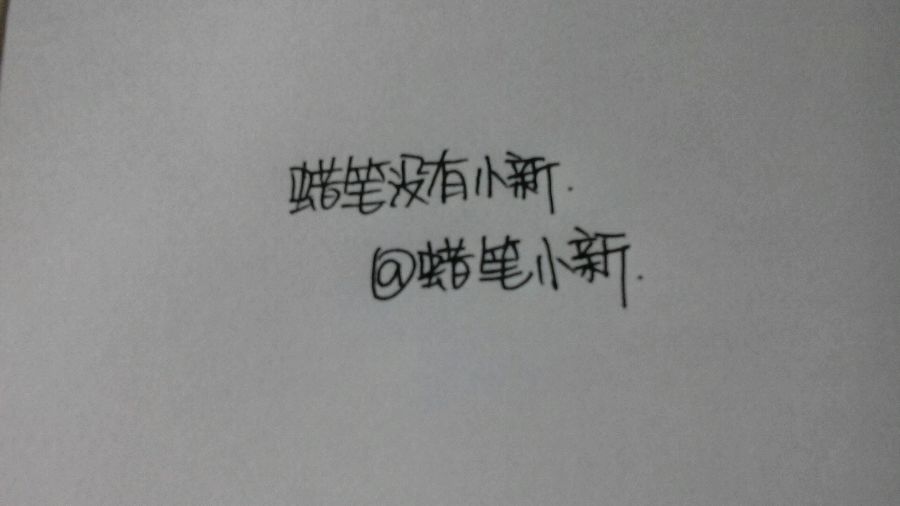 蜡笔没有小新.
@蜡笔小新.